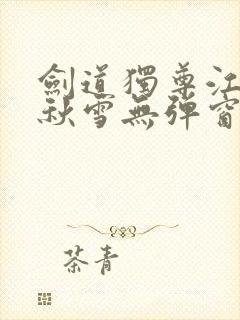 劍道獨尊江
秋雪無彈窗
茶青